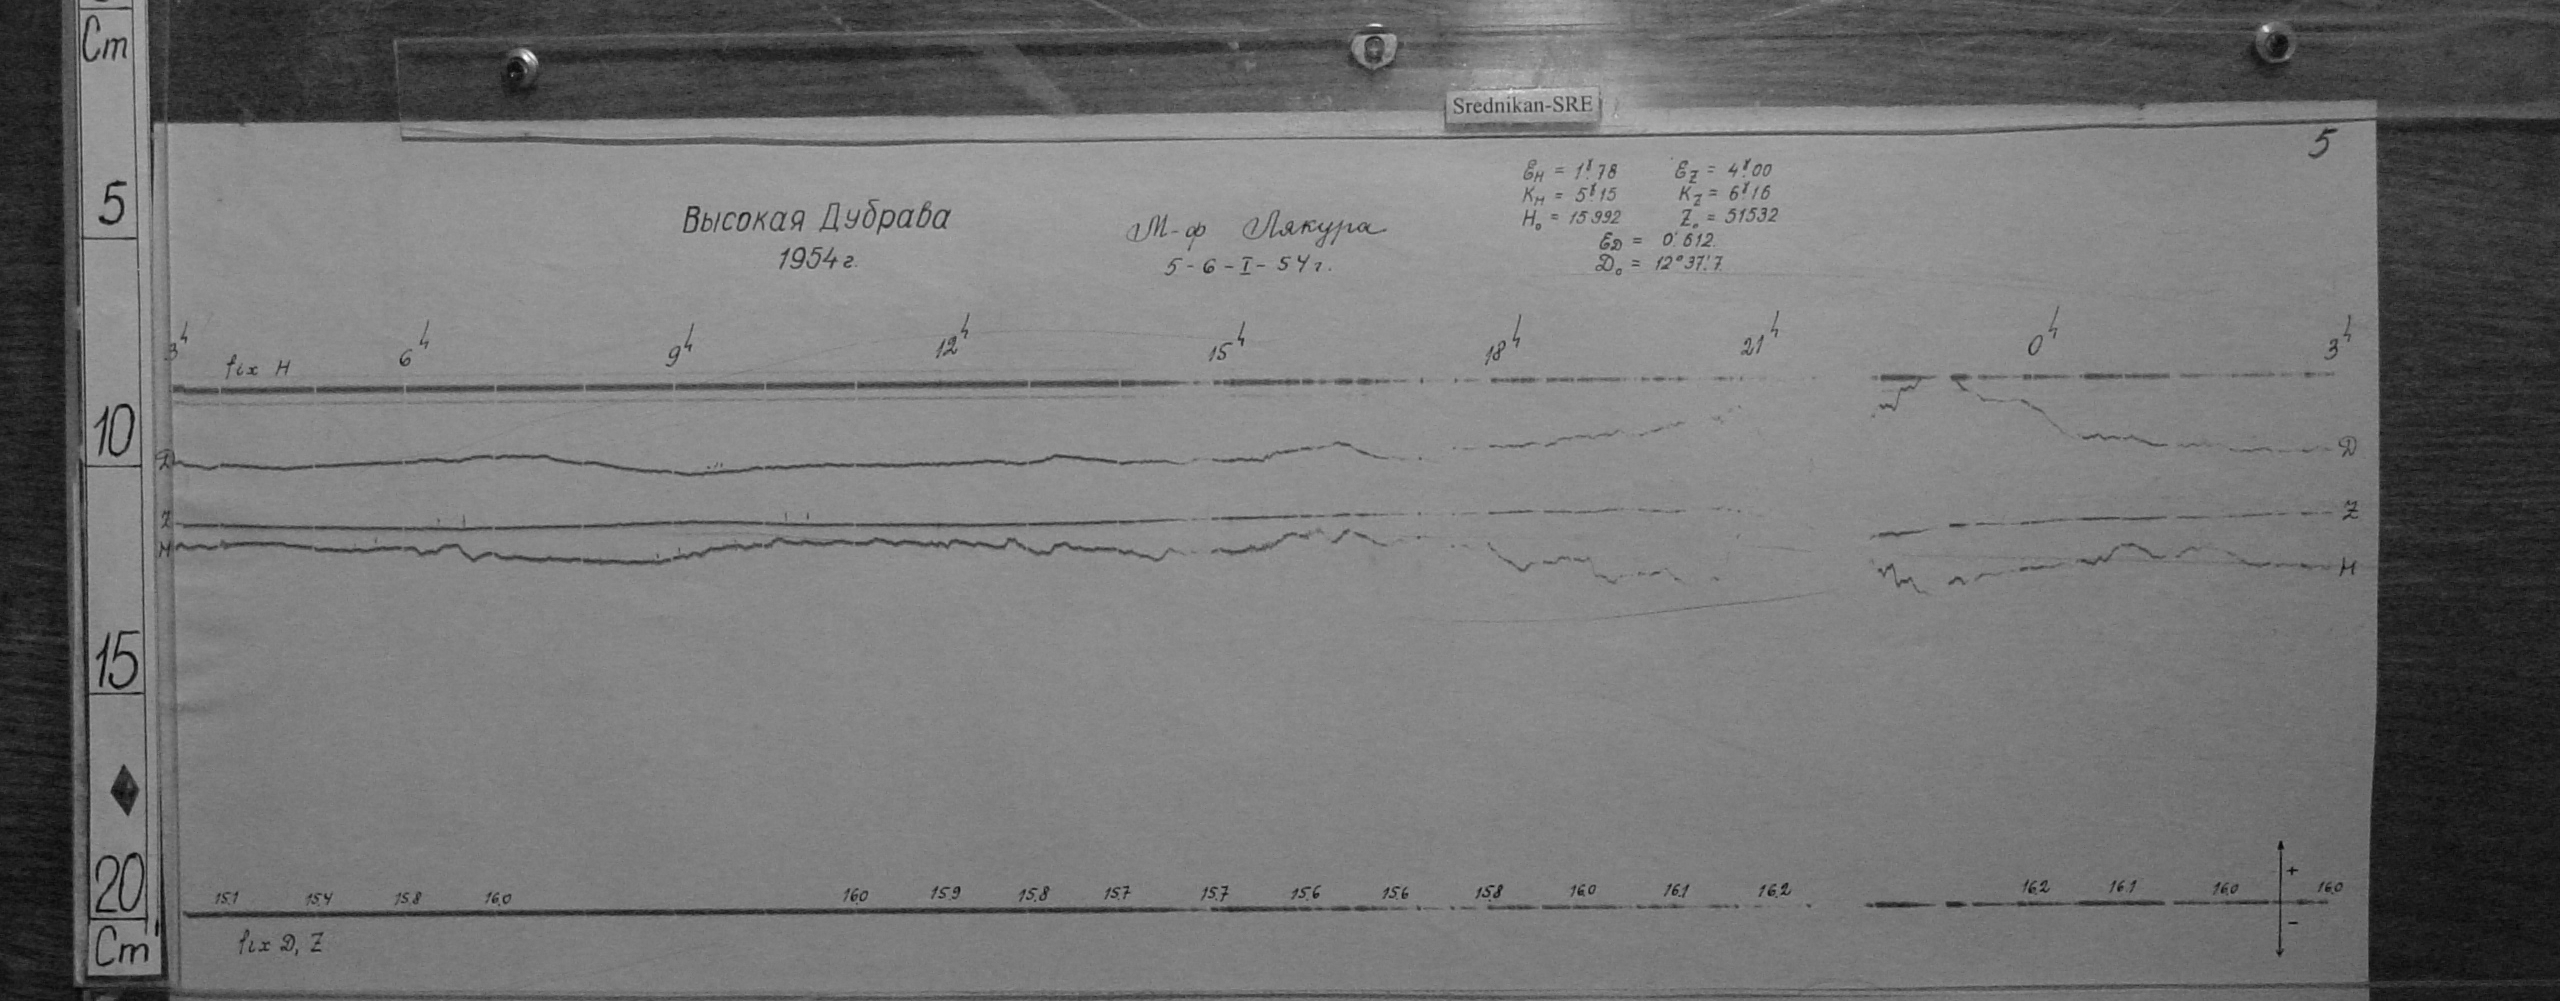 Cm
5
10
15
20
Cm
Srednikan-SRE
5
Высокая Дубрава
1954 г.
М-ф Лякура
5-6-I-54 г.
ℰH = 1ᵞ.78 ℰZ = 4ᵞ.00
KH = 5ᵞ.15 KZ = 6ᵞ.16
H₀ = 15992 Z₀ = 51532
ℰD = 0'.612
D₀ = 12°37'.7
3ʰ 6ʰ 9ʰ 12ʰ 15ʰ 18ʰ 21ʰ 0ʰ 3ʰ
fix H
D D
Z Z
H H
15.1 15.4 15.8 16.0 16.0 15.9 15.8 15.7 15.7 15.6 15.6 15.8 16.0 16.1 16.2 16.2 16.1 16.0 16.0
+
−
fix D, Z